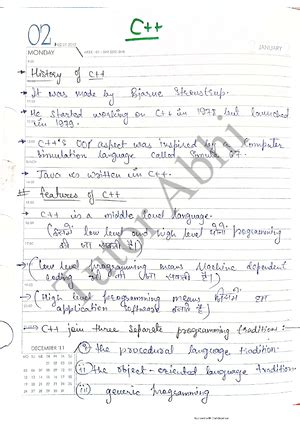 C++
02
MONDAY
JANUARY
→ History of C++
→ It was made by Bjarne Stroustrup.
→ He started working on C++ in 1978 but launched
in 1979.
→ C++'s OOP aspect was inspired by a computer
simulation language called Simula 67.
→ Java is written in C++.
# Features of C++
→ C++ is a middle level language.
(इसमें low level and high level programming
की जा सकती है)
→ (Low level programming means Machine dependent
coding की जाती है)
→ (High level programming means
application software बनाते है)
→ C++ join three separate programming tradition:
(i) the procedural language tradition
(ii) the object-oriented language tradition
(iii) generic programming
DECEMBER'11
Tutor Abhi